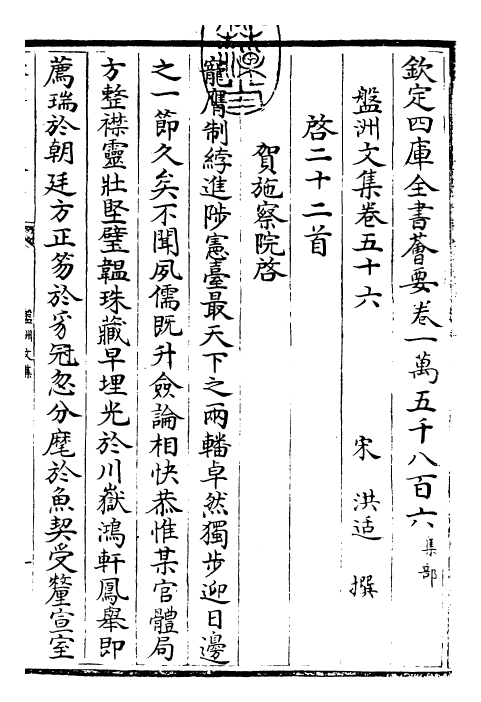 欽定四庫全書薈要卷一萬五千八百六集部
盤洲文集卷五十六
宋 洪适 撰
啓二十二首
賀施察院啓
寵膺制綍進陟憲臺最天下之兩轓卓然獨步迎日邊
之一節久矣不聞夙儒既升僉論相快恭惟某官體局
方整襟靈壯堅璧韞珠藏早埋光於川嶽鴻軒鳳舉即
薦瑞於朝廷方正笏於豸冠忽分麾於魚契受釐宣室
盤洲文集